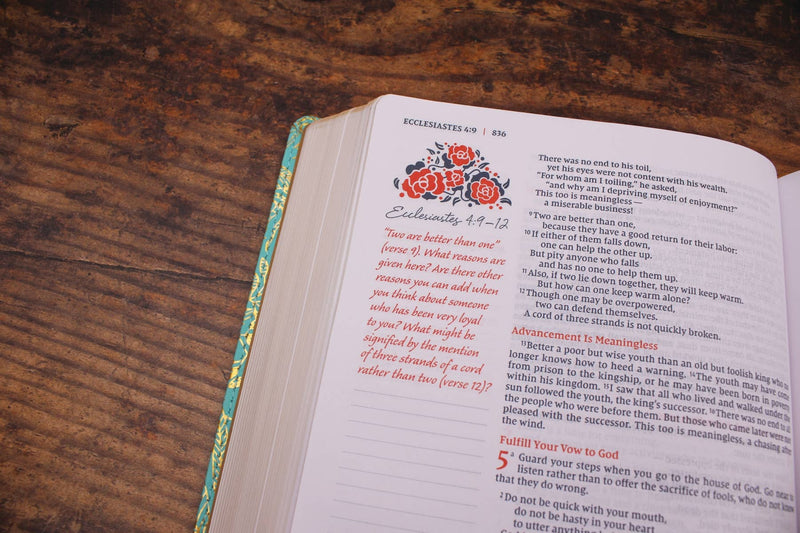 ECCLESIASTES 4:9 | 836
Ecclesiastes 4:9–12
"Two are better than one"
(verse 9). What reasons are
given here? Are there other
reasons you can add when
you think about someone
who has been very loyal
to you? What might be
signified by the mention
of three strands of a cord
rather than two (verse 12)?
There was no end to his toil,
yet his eyes were not content with his wealth.
"For whom am I toiling," he asked,
"and why am I depriving myself of enjoyment?"
This too is meaningless—
a miserable business!
9 Two are better than one,
because they have a good return for their labor:
10 If either of them falls down,
one can help the other up.
But pity anyone who falls
and has no one to help them up.
11 Also, if two lie down together, they will keep warm.
But how can one keep warm alone?
12 Though one may be overpowered,
two can defend themselves.
A cord of three strands is not quickly broken.
Advancement Is Meaningless
13 Better a poor but wise youth than an old but foolish king who no
longer knows how to heed a warning. 14 The youth may have come
from prison to the kingship, or he may have been born in poverty
within his kingdom. 15 I saw that all who lived and walked under the
sun followed the youth, the king's successor. 16 There was no end to all
the people who were before them. But those who came later were not
pleased with the successor. This too is meaningless, a chasing after
the wind.
Fulfill Your Vow to God
5 a Guard your steps when you go to the house of God. Go near to
listen rather than to offer the sacrifice of fools, who do not know
that they do wrong.
2 Do not be quick with your mouth,
do not be hasty in your heart
to utter anything